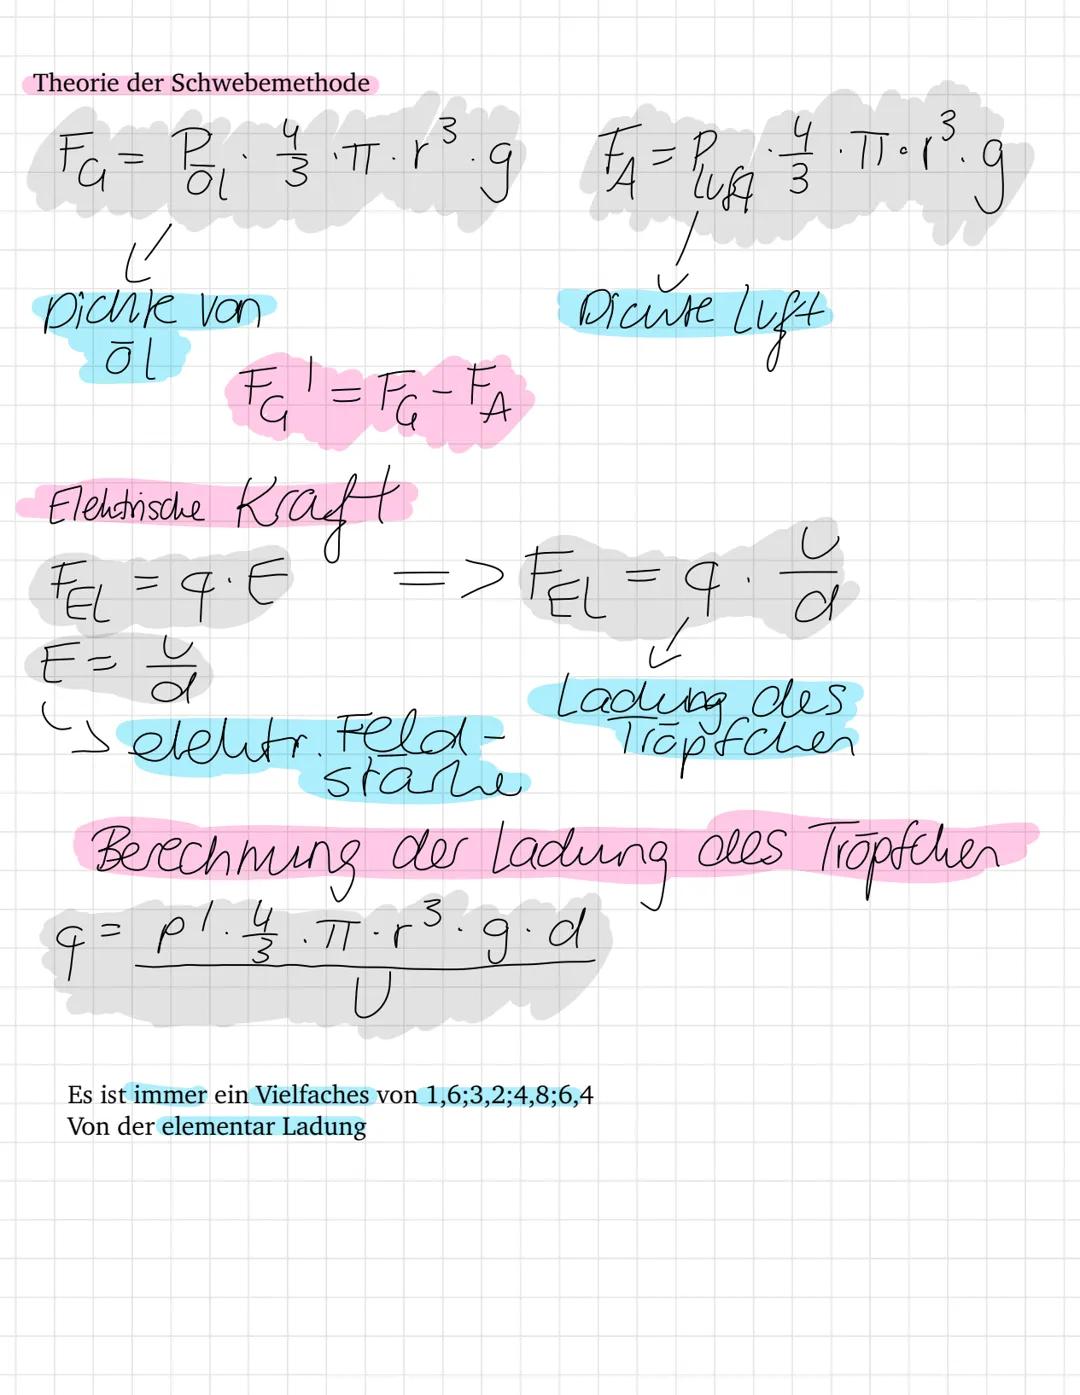 Theorie der Schwebemethode
F_G = ρ_Öl · 4/3 · π · r³ · g
F_A = ρ_Luft · 4/3 · π · r³ · g
Dichte von
Öl
Dichte Luft
F_G' = F_G - F_A
Elektrische Kraft
F_EL = q · E => F_EL = q · U/d
E = U/d
Ladung des
Tröpfchen
elektr. Feld-
stärke
Berechnung der Ladung des Tröpfchen
q = ρ' · 4/3 · π · r³ · g · d / U
Es ist immer ein Vielfaches von 1,6;3,2;4,8;6,4
Von der elementar Ladung